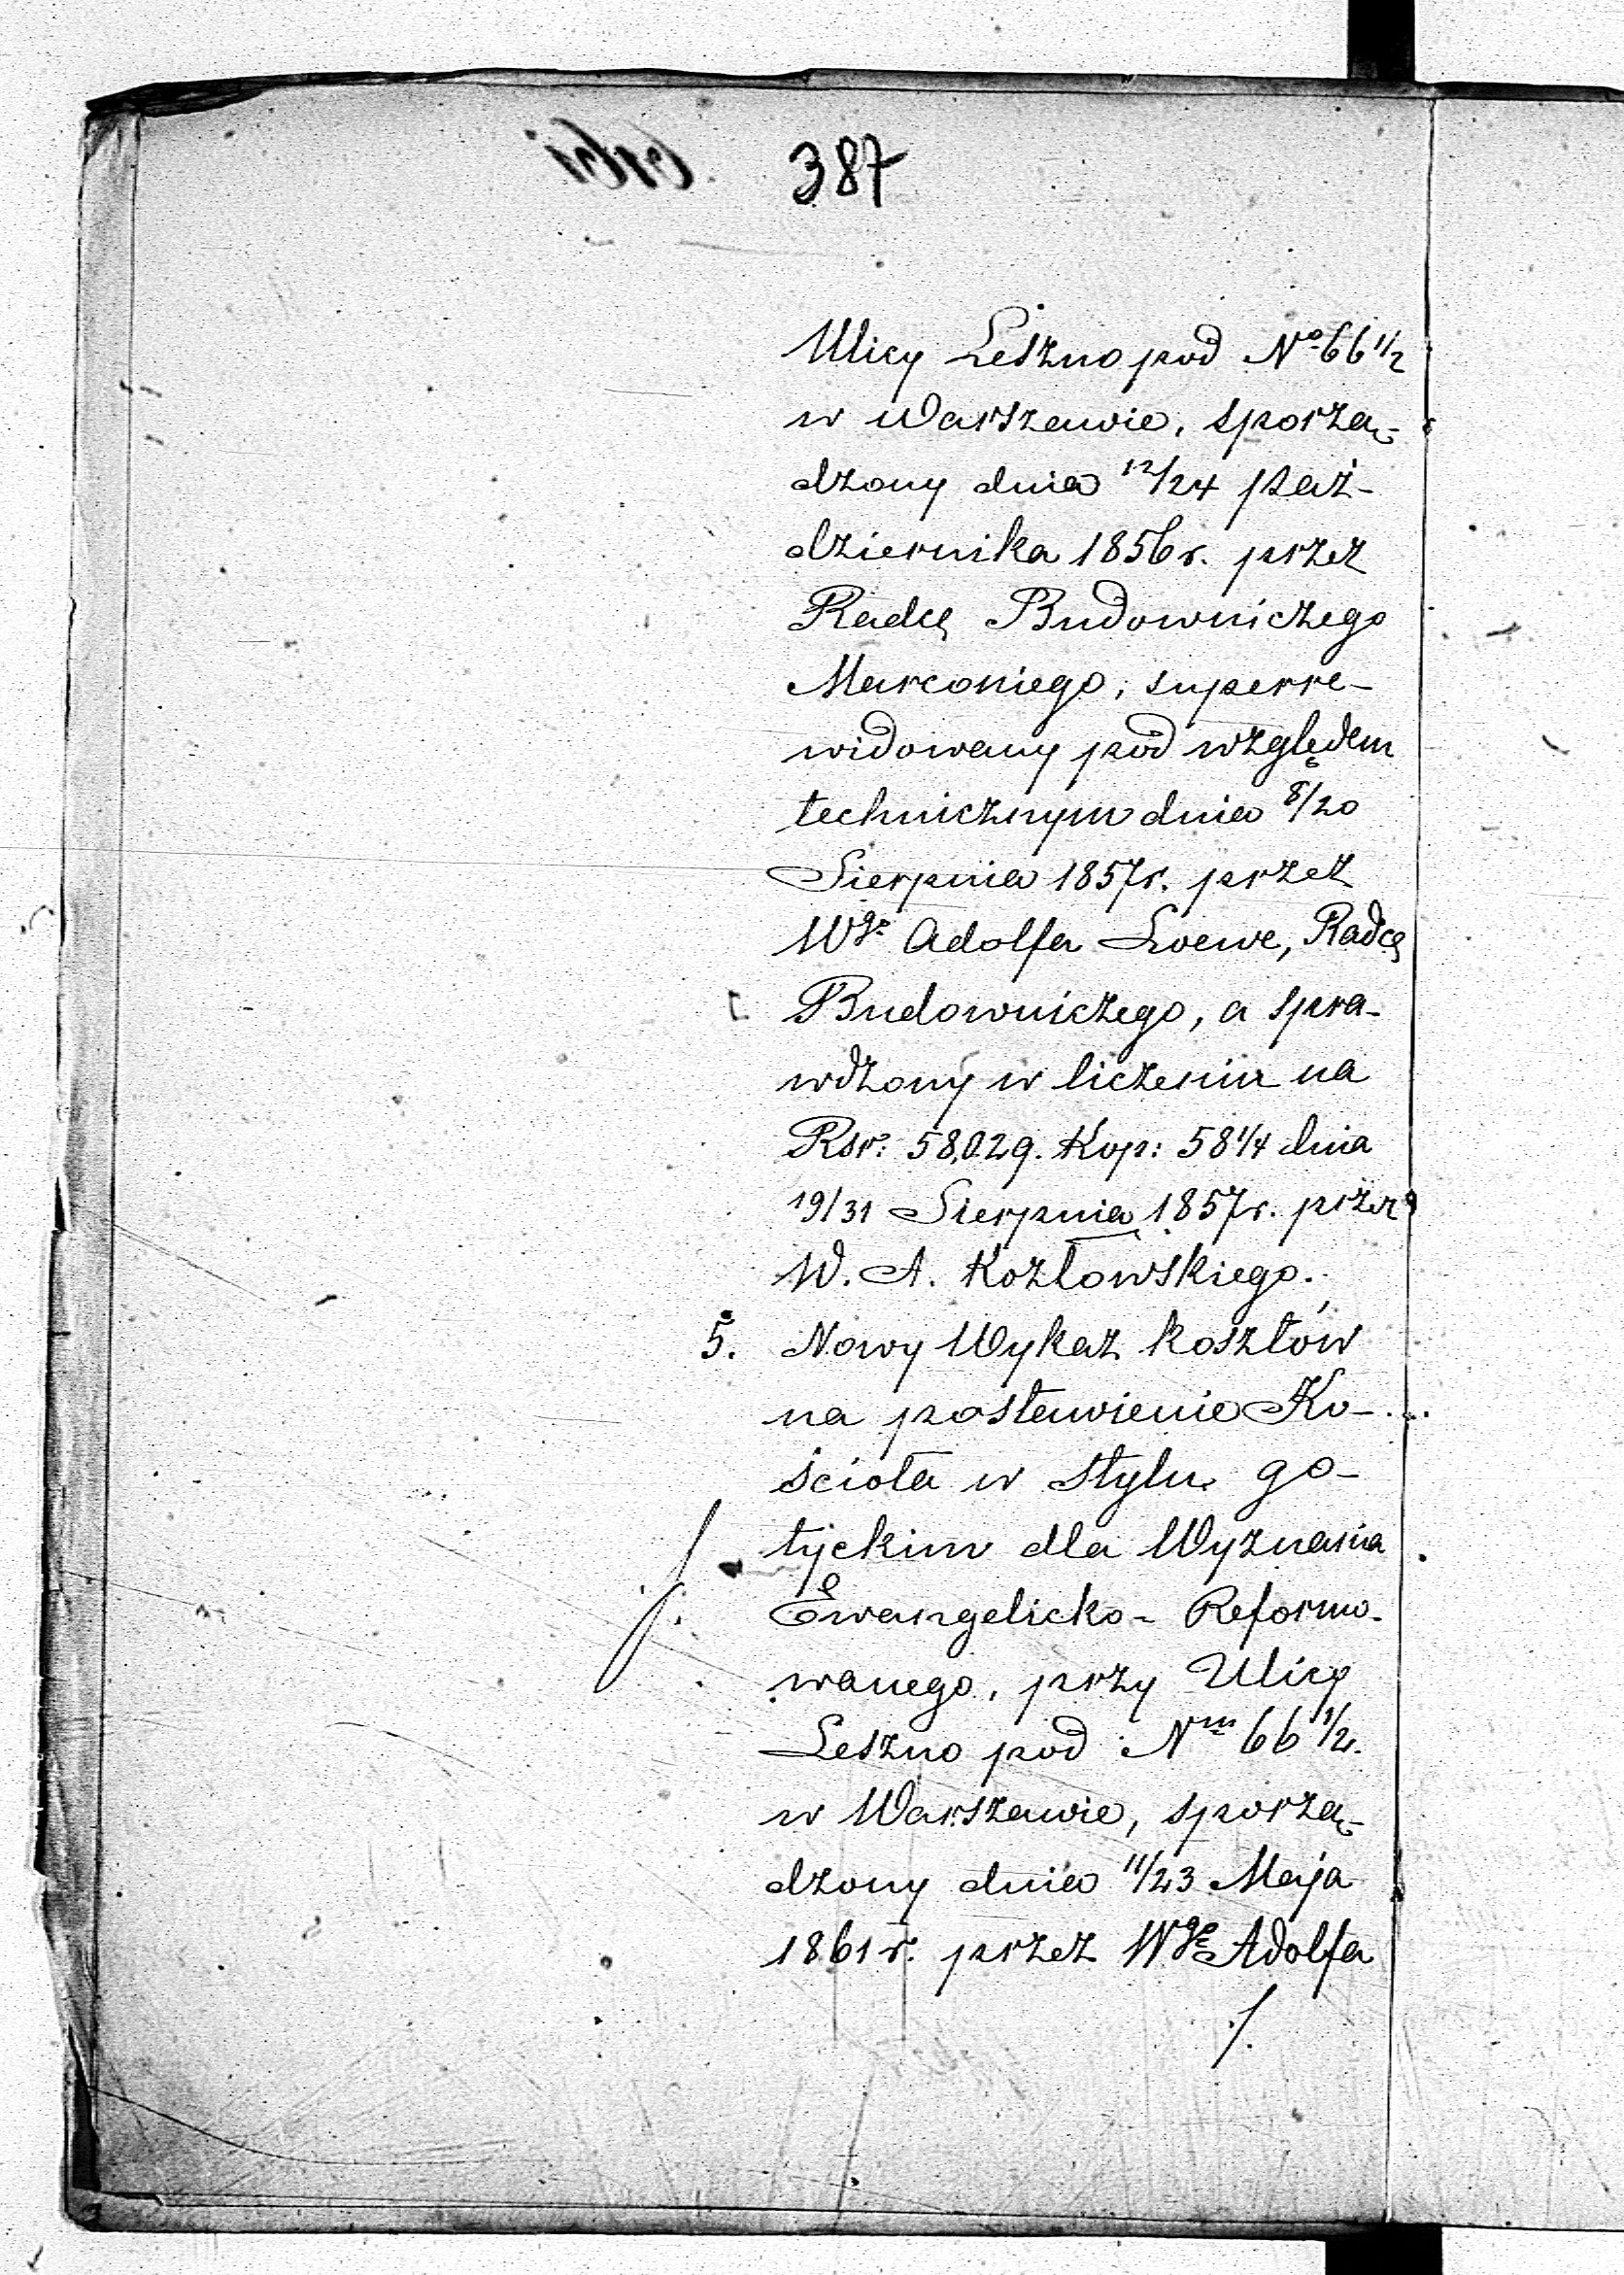 387
Ulicy Leszno pod No 66 1/2
w Warszawie, sporzą-
dzony dnia 12/24 Paź-
dziernika 1856 r. przez
Radcę Budowniczego
Marconiego, superre-
widowany pod względem
technicznym dnia 8/20
Sierpnia 1857 r. przez
Wgo Adolfa Loewe, Radcę
Budowniczego, a spra-
wdzony w liczeniu na
Rsr: 58,029. Kop: 58 1/4 dnia
19/31 Sierpnia 1857 r. przez
W. A. Kozłowskiego.
5. Nowy Wykaz kosztów
na postawienie Ko-
ścioła w stylu go-
tyckim dla Wyznania
Ewangelicko-Reformo-
wanego, przy Ulicy
Leszno pod Nm 66 1/2.
w Warszawie, sporzą-
dzony dnia 11/23 Maja
1861 r. przez Wgo Adolfa
./.